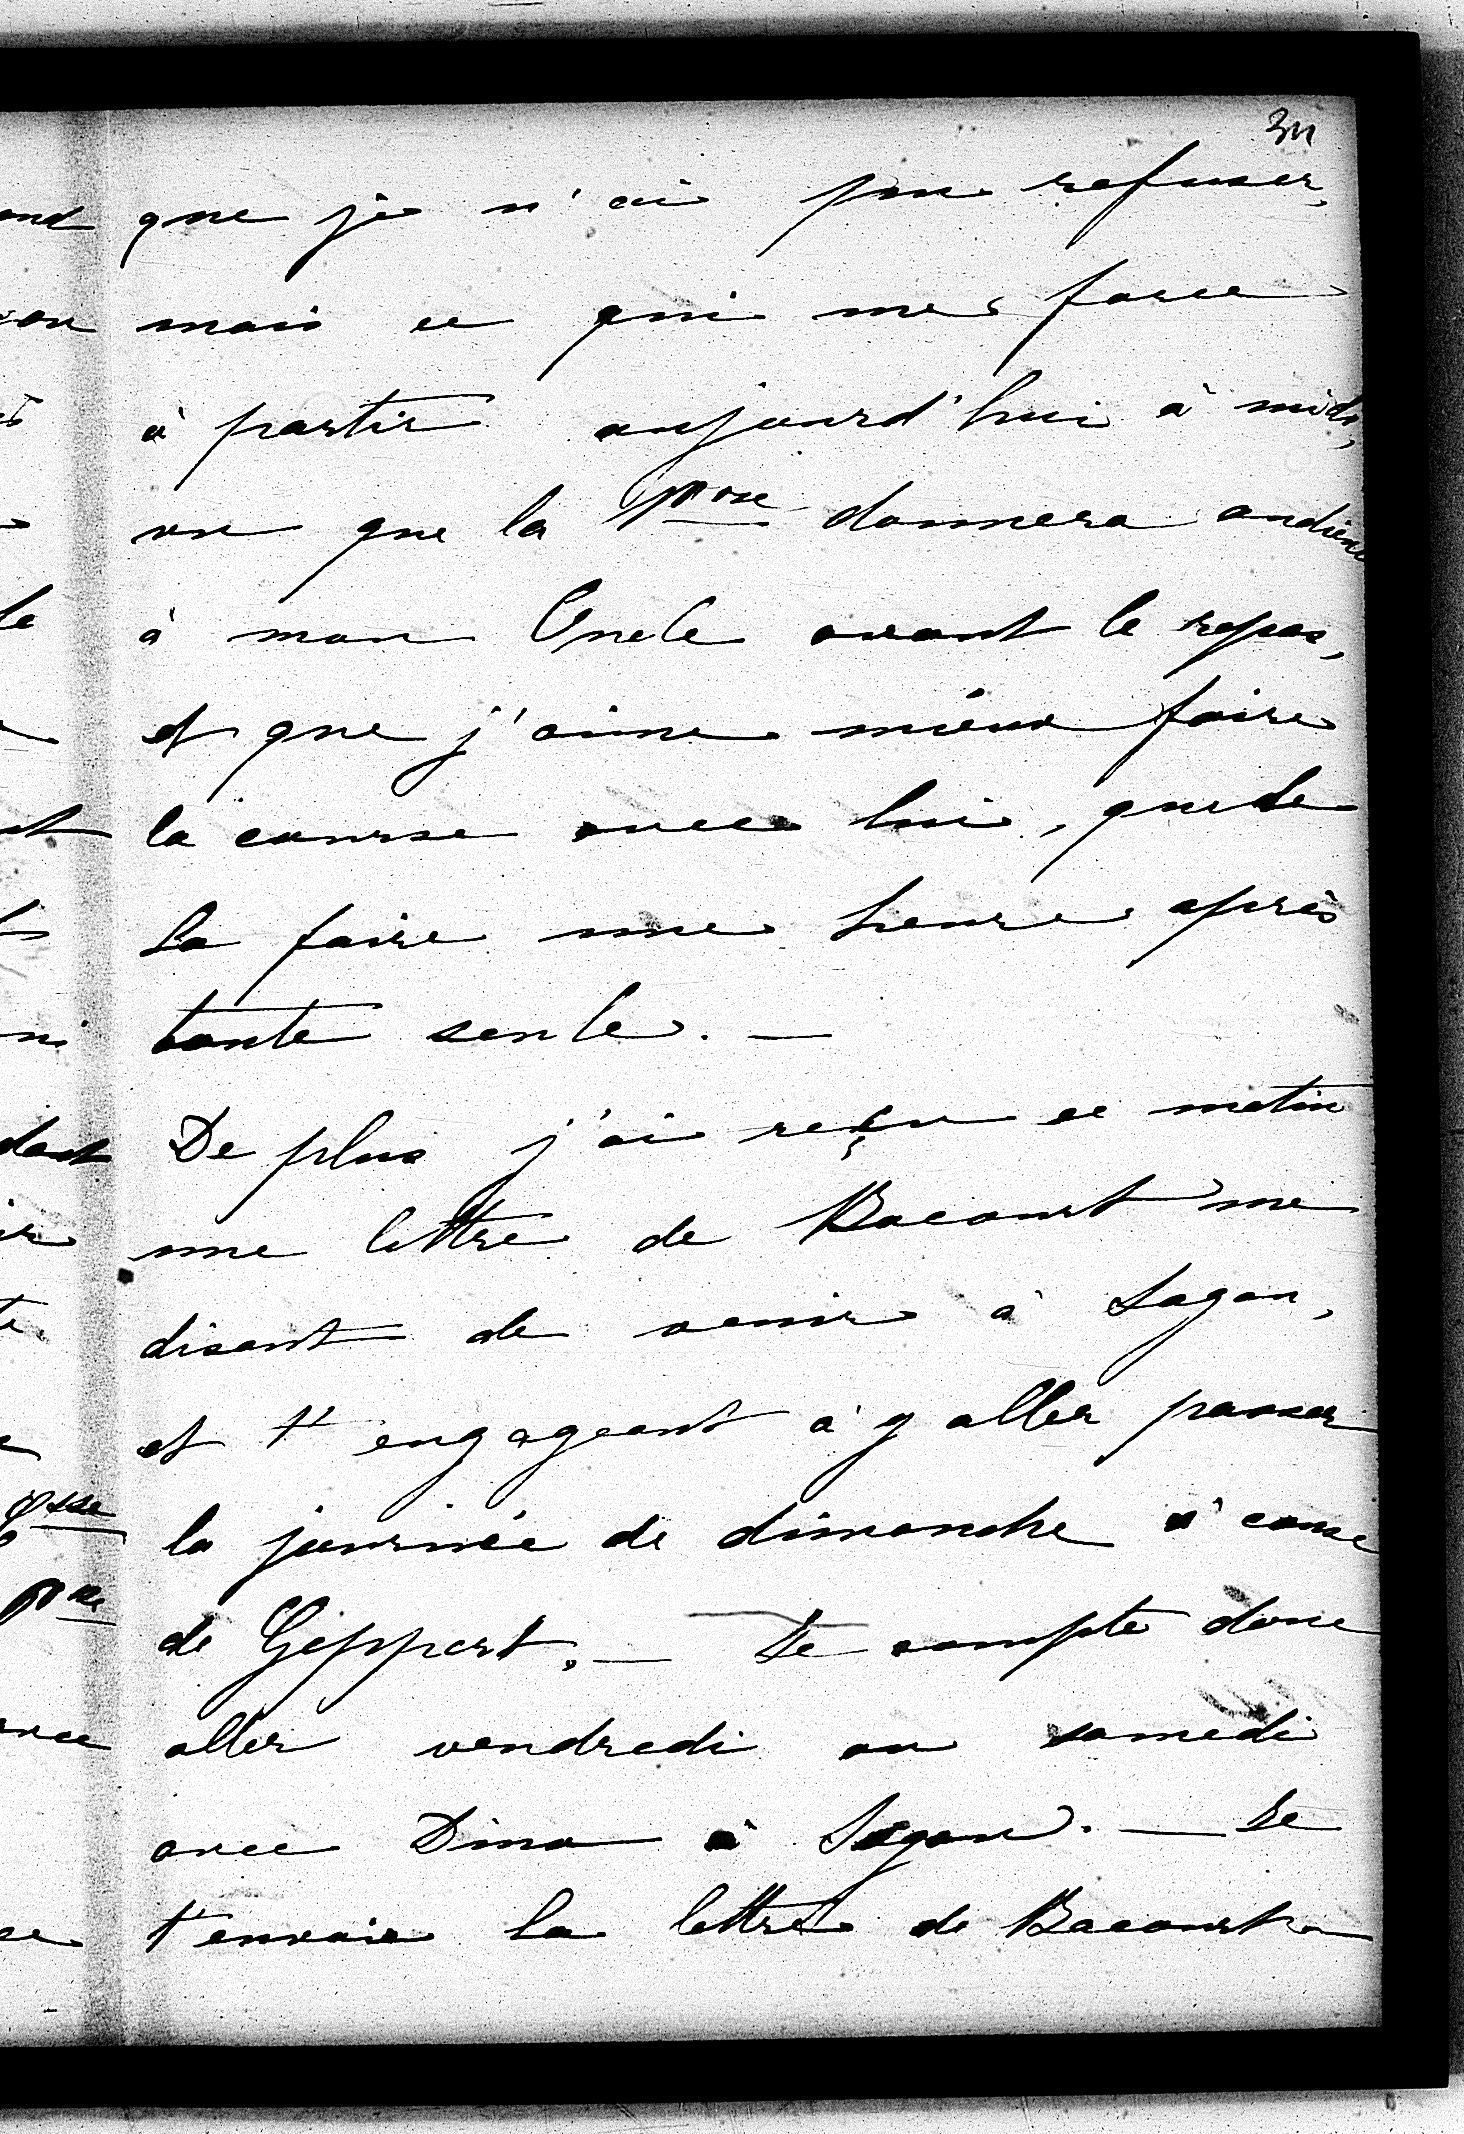 311
que je n'ai pu refuser,
mais ce qui me force
à partir aujourd'hui à midi,
vu que la donnera audience
à mon Oncle avant le repas,
et que j'aime mieux faire
la course avec lui, que de
la faire une heure après
toute seule. —
De plus j'ai reçu ce matin
une lettre de Bacourt me
disant de venir à Sagan,
et t'engageant à y aller passer
la journée de dimanche à cause
de Geppert. — Je compte donc
aller vendredi ou samedi
avec Dino à Sagan. — Je
t'envoie la lettre de Bacourt